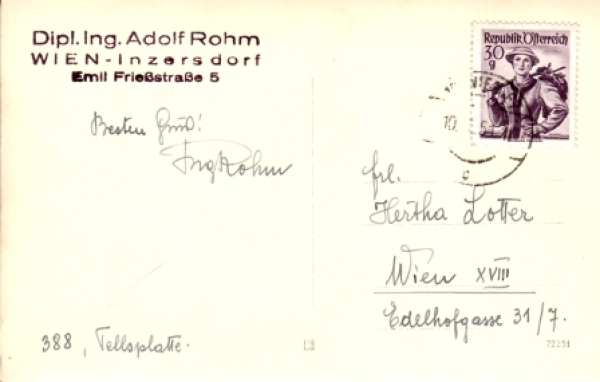 Dipl. Ing. Adolf Rohm
WIEN - Inzersdorf
Emil Frießstraße 5
Besten Gruß!
Ing Rohm
388, Tellsplatte.
Republik Österreich
30
g
frl.
Hertha Lotter
Wien XVIII
Edelhofgasse 31/7.
72251